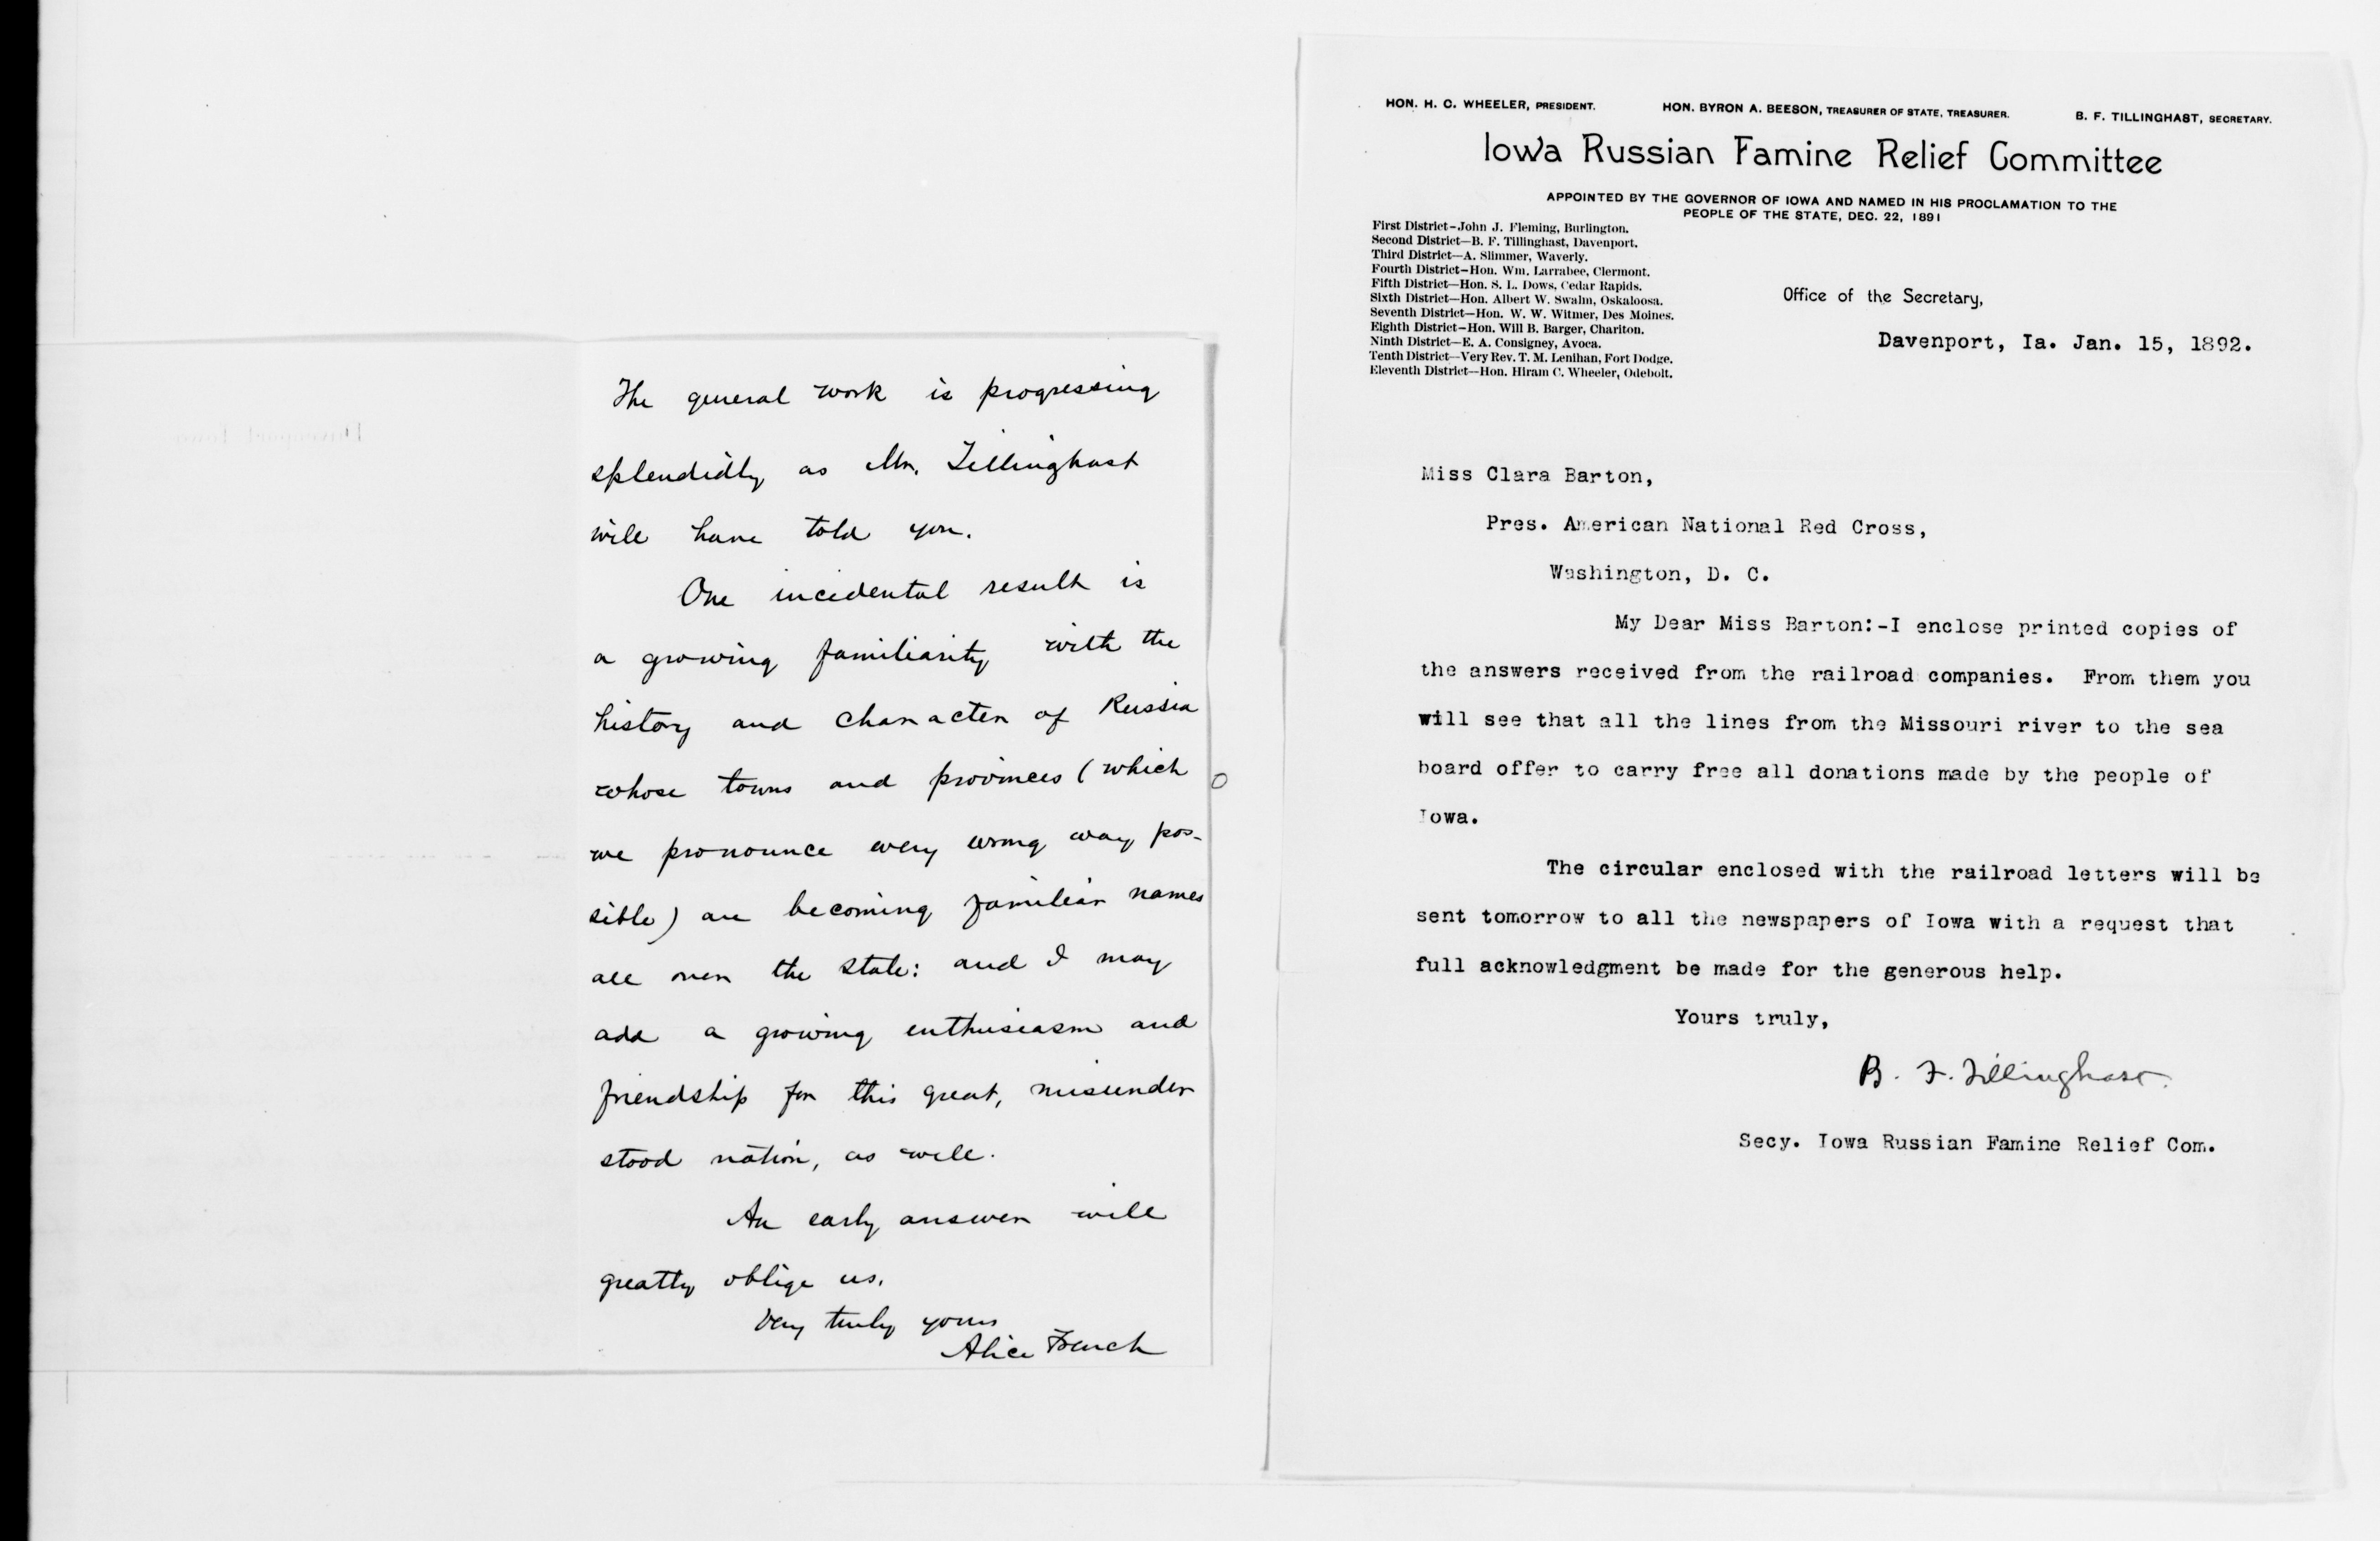 The general work is progressing
splendidly as Mr. Tillinghast
will have told you.
One incidental result is
a growing familiarity with the
history and character of Russia
whose towns and provinces (which
we pronounce every wrong way pos-
sible) are becoming familiar names
all over the state: and I may
add a growing enthusiasm and
friendship for this great, misunder
stood nation, as well.
An early answer will
greatly oblige us.
Very truly yours
Alice French
HON. H. C. WHEELER, PRESIDENT. HON. BYRON A. BEESON, TREASURER OF STATE, TREASURER. B. F. TILLINGHAST, SECRETARY.
Iowa Russian Famine Relief Committee
APPOINTED BY THE GOVERNOR OF IOWA AND NAMED IN HIS PROCLAMATION TO THE
PEOPLE OF THE STATE, DEC. 22, 1891
First District-John J. Fleming, Burlington.
Second District—B. F. Tillinghast, Davenport.
Third District—A. Slimmer, Waverly.
Fourth District—Hon. Wm. Larrabee, Clermont.
Fifth District—Hon. S. L. Dows, Cedar Rapids.
Sixth District—Hon. Albert W. Swalm, Oskaloosa.
Seventh District—Hon. W. W. Witmer, Des Moines.
Eighth District—Hon. Will B. Barger, Chariton.
Ninth District—E. A. Consigney, Avoca.
Tenth District—Very Rev. T. M. Lenihan, Fort Dodge.
Eleventh District—Hon. Hiram C. Wheeler, Odebolt.
Office of the Secretary,
Davenport, Ia. Jan. 15, 1892.
Miss Clara Barton,
Pres. American National Red Cross,
Washington, D. C.
My Dear Miss Barton:-I enclose printed copies of
the answers received from the railroad companies. From them you
will see that all the lines from the Missouri river to the sea
board offer to carry free all donations made by the people of
Iowa.
The circular enclosed with the railroad letters will be
sent tomorrow to all the newspapers of Iowa with a request that
full acknowledgment be made for the generous help.
Yours truly,
B. F. Tillinghast.
Secy. Iowa Russian Famine Relief Com.